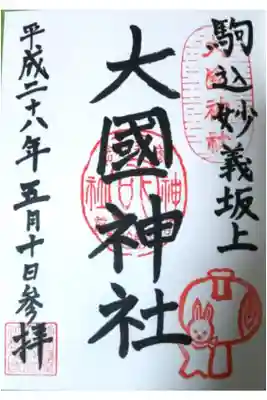 駒込妙義坂上
大國神社
平成二十八年五月十日参拝